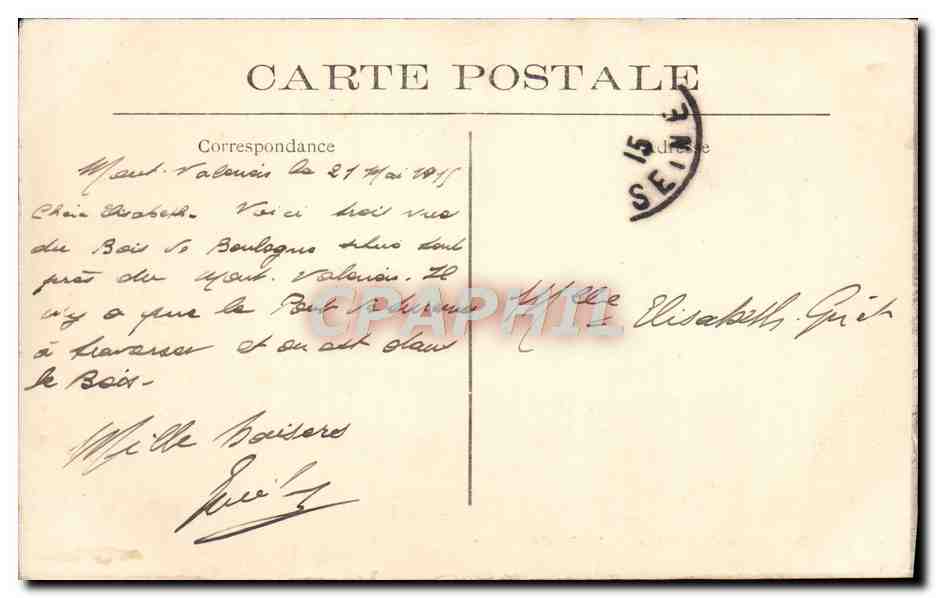 CARTE POSTALE
Correspondance
Adresse
15
SEINE
Mont-Valérien le 21 Mai 1915
Chère Elisabeth. Voici trois vues
du Bois de Boulogne situé tout
près du Mont-Valérien. Il
n'y a que le Pont
à traverser et on est dans
le Bois-
Mille baisers
Mlle Elisabeth
CPAPHIL